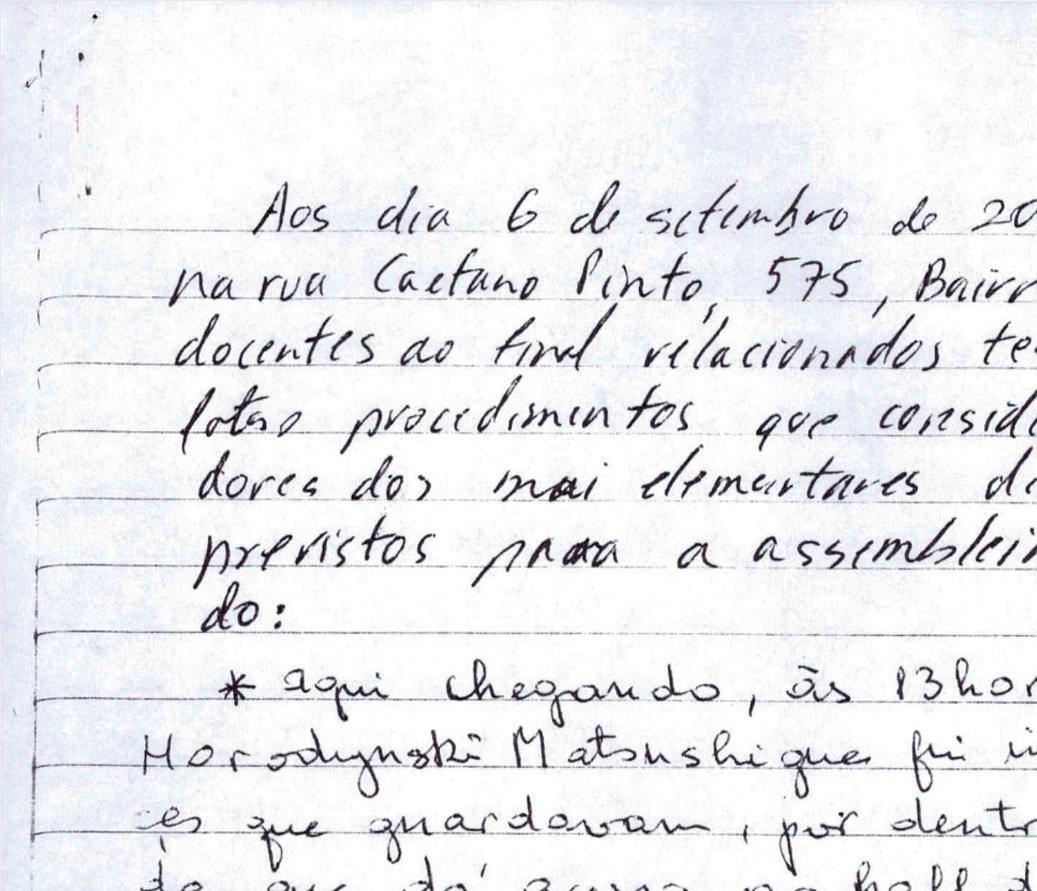 Aos dia 6 de setembro de 20
na rua Caetano Pinto, 575, Bairr
docentes ao final relacionados te
procedimentos que consid
dores dos mai elementares d
previstos para a assemblei
do:
* aqui chegando, às 13hor
Horodynski Matsushigue fui i
es que guardavam, por dentr
que dá acesso ao hall d